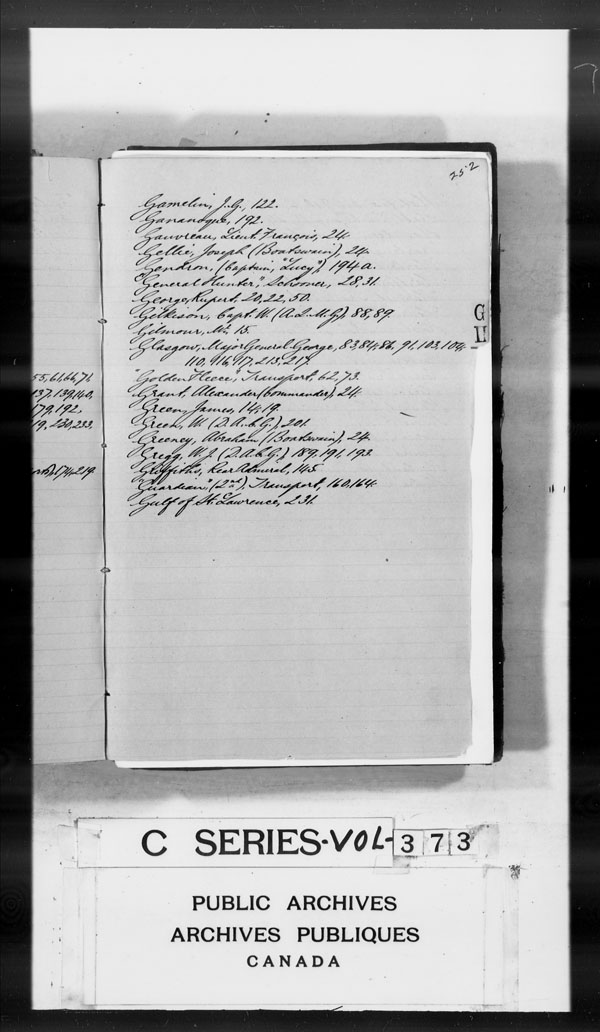 252
Gamelin, J. G., 122.
Gananoque, 192.
Gauvreau, Lieut. François, 24.
Gellie, Joseph (Boatswain), 24.
Gendron, (Captain, "Lucy"), 194a.
"General Hunter," Schooner, 28,31.
George, Rupert, 20,22,50.
Gilkison, Capt. W. (A.Q.M.G.), 88,89.
Gilmour, Mr. 15.
Glasgow, Major General George, 83,84,86, 91, 103, 104,
110, 116, 117, 213, 217.
"Golden Fleece," Transport, 62,73.
Grant, Alexander (Commander), 24.
Green, James, 14,19.
Green, W. (D.A.C.G.), 201.
Greeney, Abraham (Boatswain), 24.
Gregg, W. J. (D.A.C.G.) 189, 191, 193.
Griffiths, Rear Admiral, 145.
"Guardian," (2nd), Transport, 160,164.
Gulf of St. Lawrence, 231.
55,61,66,71,
137,139,140,
179,192.
19, 230,233.
174,219.
G
H
C SERIES-VOL-373
PUBLIC ARCHIVES
ARCHIVES PUBLIQUES
CANADA